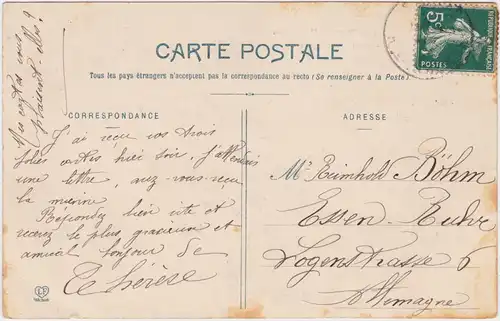 Mes cartes vous
plaisent elles ?
CARTE POSTALE
Tous les pays étrangers n'acceptent pas la correspondance au recto (Se renseigner à la Poste)
5c
POSTES
CORRESPONDANCE
J'ai reçu vos trois
jolies cartes hier soir, j'attendais
une lettre, avez-vous reçu
la mienne
Répondez bien vite et
recevez le plus gracieux et
amical bonjour de
Thérèse
ADRESSE
Mr Reinhold Böhm
Essen-Ruhr
Logenstrasse 6
Allemagne